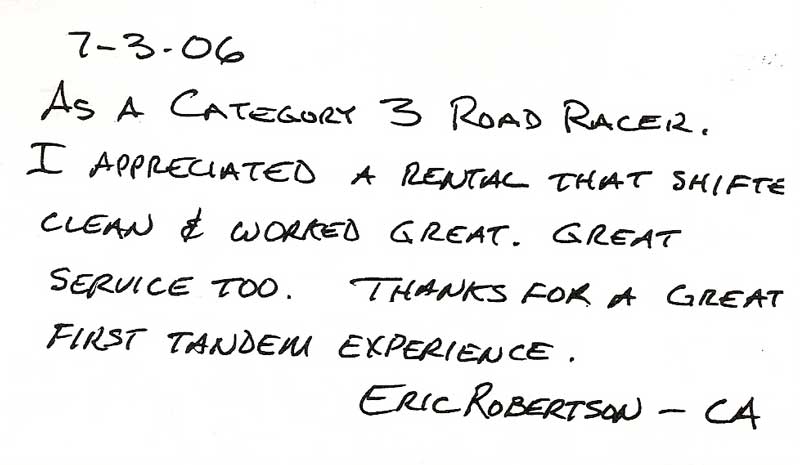 7-3-06
AS A CATEGORY 3 ROAD RACER.
I APPRECIATED A RENTAL THAT SHIFTE
CLEAN & WORKED GREAT. GREAT
SERVICE TOO. THANKS FOR A GREAT
FIRST TANDEM EXPERIENCE.
ERIC ROBERTSON - CA